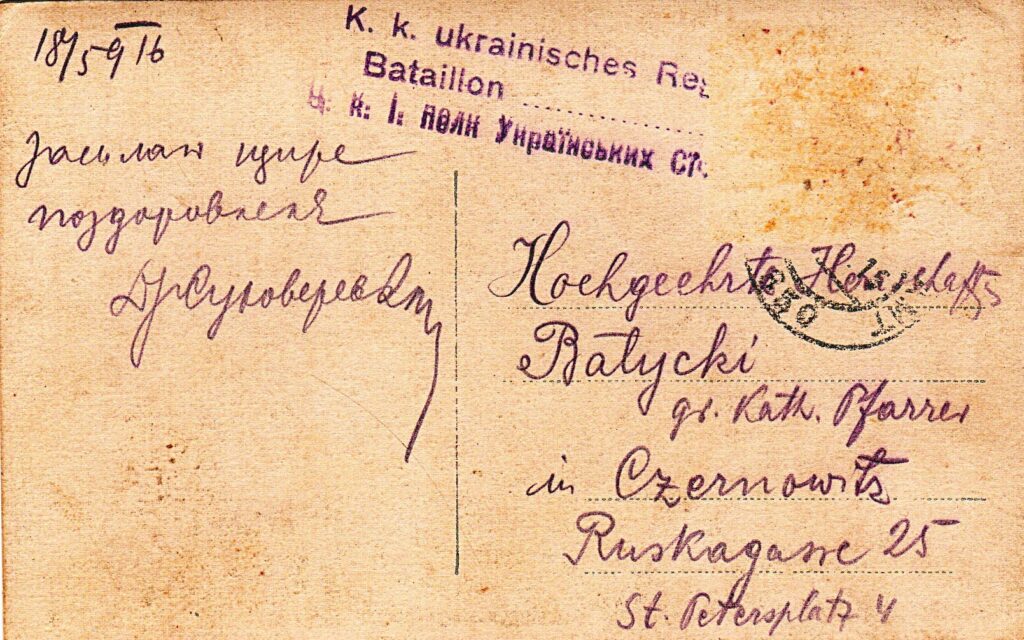 18/5 916
K. k. ukrainisches Reg
Bataillon
ц. к. І. полк Українських Ст
Засилаю щире
поздоровленя
Hochgeehrte Herrschaft
Batycki
gr. Kath. Pfarrer
in Czernowitz
Ruskagasse 25
St. Petersplatz 4
630